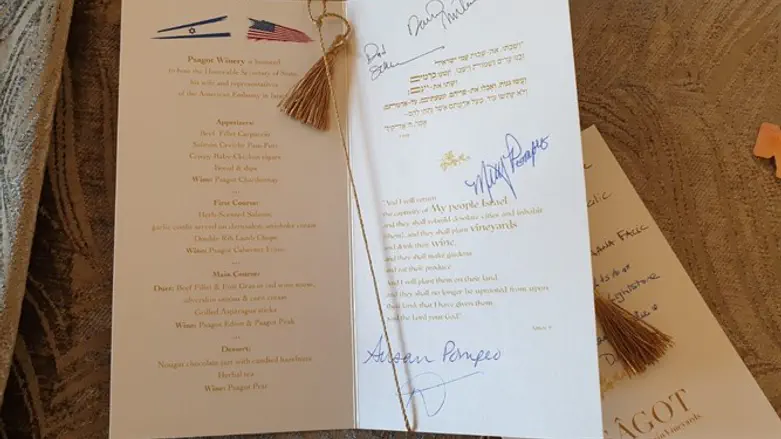 Psagot Winery is honored
to host the Honorable Secretary of State,
his wife and representatives
of the American Embassy in
Appetizers:
Beef Fillet Carpaccio
Salmon Ceviche
Bread & dips
Wine: Psagot Chardonnay
First Course:
Herb-Scented Salmon,
Double Rib Lamb Chops
Wine: Psagot Cabernet Franc
Main Course:
Duet: Beef Fillet & Foie Gras in red wine sauce,
Grilled Asparagus sticks
Wine: Psagot Edom & Psagot Peak
Dessert:
Nougat chocolate tart with candied hazelnuts
Herbal tea
Wine: Psagot Port
David
ושבתי את שבות עמי ישראל
ובנו ערים נשמות וישבו ונטעו כרמים
ושתו את יינם
ועשו גנות ואכלו את פריהם ונטעתים על אדמתם
ולא ינתשו עוד מעל אדמתם אשר נתתי להם
Mike Pompeo
"And I will return
the captivity of My people Israel
and they shall rebuild desolate cities and inhabit
them, and they shall plant vineyards
and drink their wine,
and they shall make gardens
and eat their produce.
And I will plant them on their land,
and they shall no longer be uprooted from upon
their land, that I have given them,
said the Lord your God."
Susan Pompeo
FALIC
ÂGOT
Vineyards